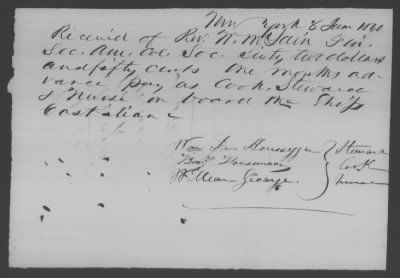 New York 8 June 1860
Received of Rev. W. McLain Fin.
Sec. Am. Col. Soc. Sixty two dollars
and fifty cents One months ad-
vance pay as Cook, Steward
& Nurse on board the Ship
Castilian
Wm Steward
Houseman Cook
William George. Nurse